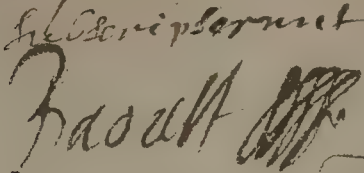 subscripserunt
Raoult